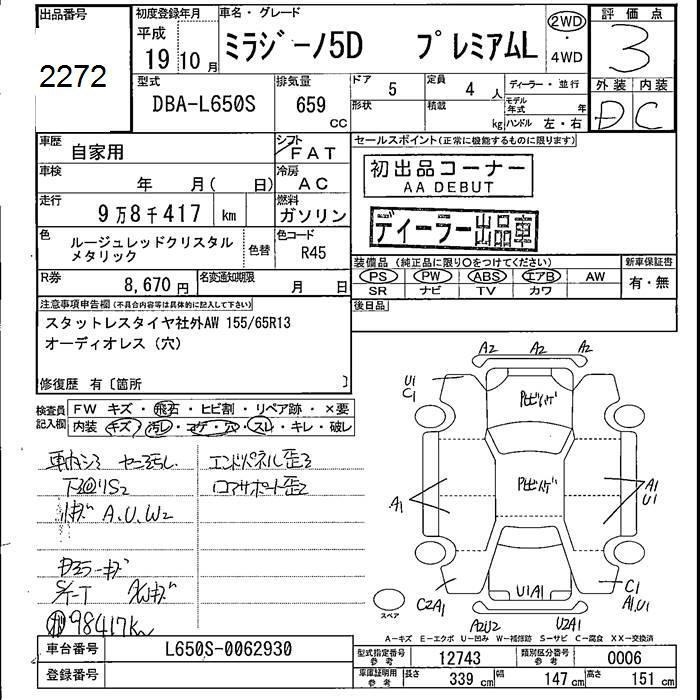 出品番号
2272
初度登録年月
平成
19 10 月
車名・グレード
ミラジーノ5D プレミアムL
2WD
・
4WD
評価点
3
外装 内装
D C
型式
DBA-L650S
排気量
659
CC
ドア 5
定員 4 人
ディーラー・並行
形状
積載 kg
モデル年式 年
ハンドル 左・右
車歴 自家用
シフト FAT
車検 年 月( 日)
冷房 AC
走行 9万8千417 km
燃料 ガソリン
色 ルージュレッドクリスタル
メタリック
色替
色コード R45
R券 8,670 円
名変通知期限 月 日
セールスポイント(正常に機能するものに限ります)
初出品コーナー
AA DEBUT
ディーラー出品車
装備品(純正品に限り○をつけてください)
新車保証書
PS PW ABS エアB AW
有・無
SR ナビ TV カワ
後日品
注意事項申告欄(不具合内容等は具体的に記入して下さい)
スタットレスタイヤ社外AW 155/65R13
オーディオレス(穴)
修復歴 有〔箇所 〕
検査員
記入欄
FW キズ・飛石・ヒビ割・リペア跡・×要
内装 キズ・汚レ・コゲ・穴・スレ・キレ・破レ
エンドパネル歪3
下回りS2
ロアサポート歪2
A.U.W2
98417km
A2 A2 A2
U1
C1
A1
A1
U1
U1A1
C2A1
C1
A1.U1
A2U2
U2A1
スペア
A−キズ E−エクボ U−凹み W−補修跡 S−サビ C−腐食 XX−交換済
車台番号 L650S-0062930
登録番号
型式指定番号
参考
12743
類別区分番号
参考
0006
車庫証明用
参考
長さ 339 cm
幅 147 cm
高さ 151 cm